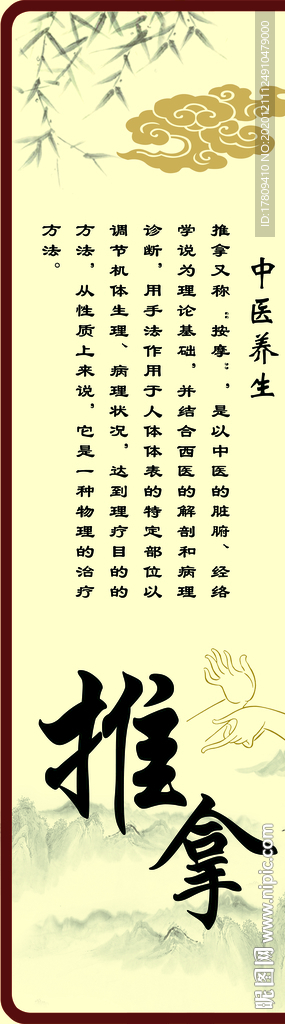 中医养生
推拿又称“按摩”，是以中医的脏腑、经络
学说为理论基础，并结合西医的解剖和病理
诊断，用手法作用于人体体表的特定部位以
调节机体生理、病理状况，达到理疗目的的
方法，从性质上来说，它是一种物理的治疗
方法。
推拿
ID:17809410 NO:20201211124910479000
昵图网 www.nipic.com